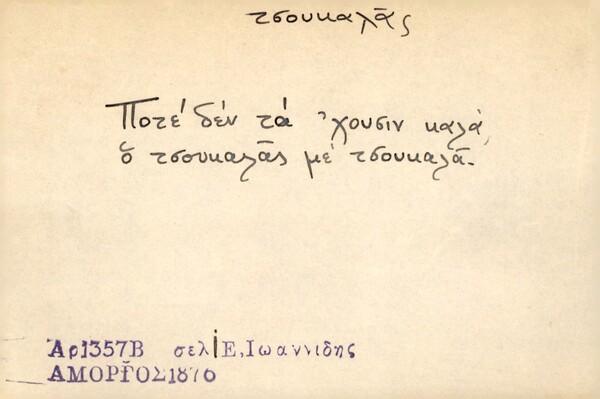 τσουκαλᾶς
Ποτέ δέν τά 'χουσιν καλά,
ὁ τσουκαλᾶς μέ τσουκαλᾶ.
Ἀρ1357Β σελ Ε, Ἰωαννιδης
ΑΜΟΡΓΟΣ 1876